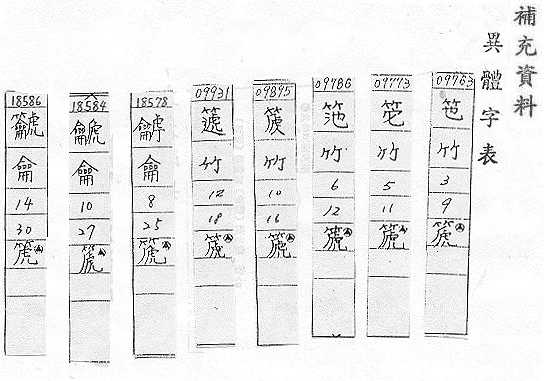 補充資料
異體字表
09763
竾
竹
3
9
篪
09773
竹
5
11
篪
09786
筂
竹
6
12
篪
09895
竹
10
16
篪
09931
竹
12
18
篪
18578
龠
8
25
篪
18584
䶵
龠
10
27
篪
18586
龠
14
30
篪